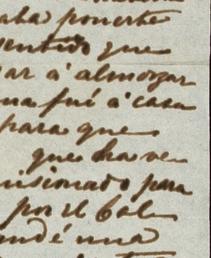 aba ponerte
sentido que
ar á almorzar
na fué á casa
para que
que ha ve
misionado para
por el Cal
andé una